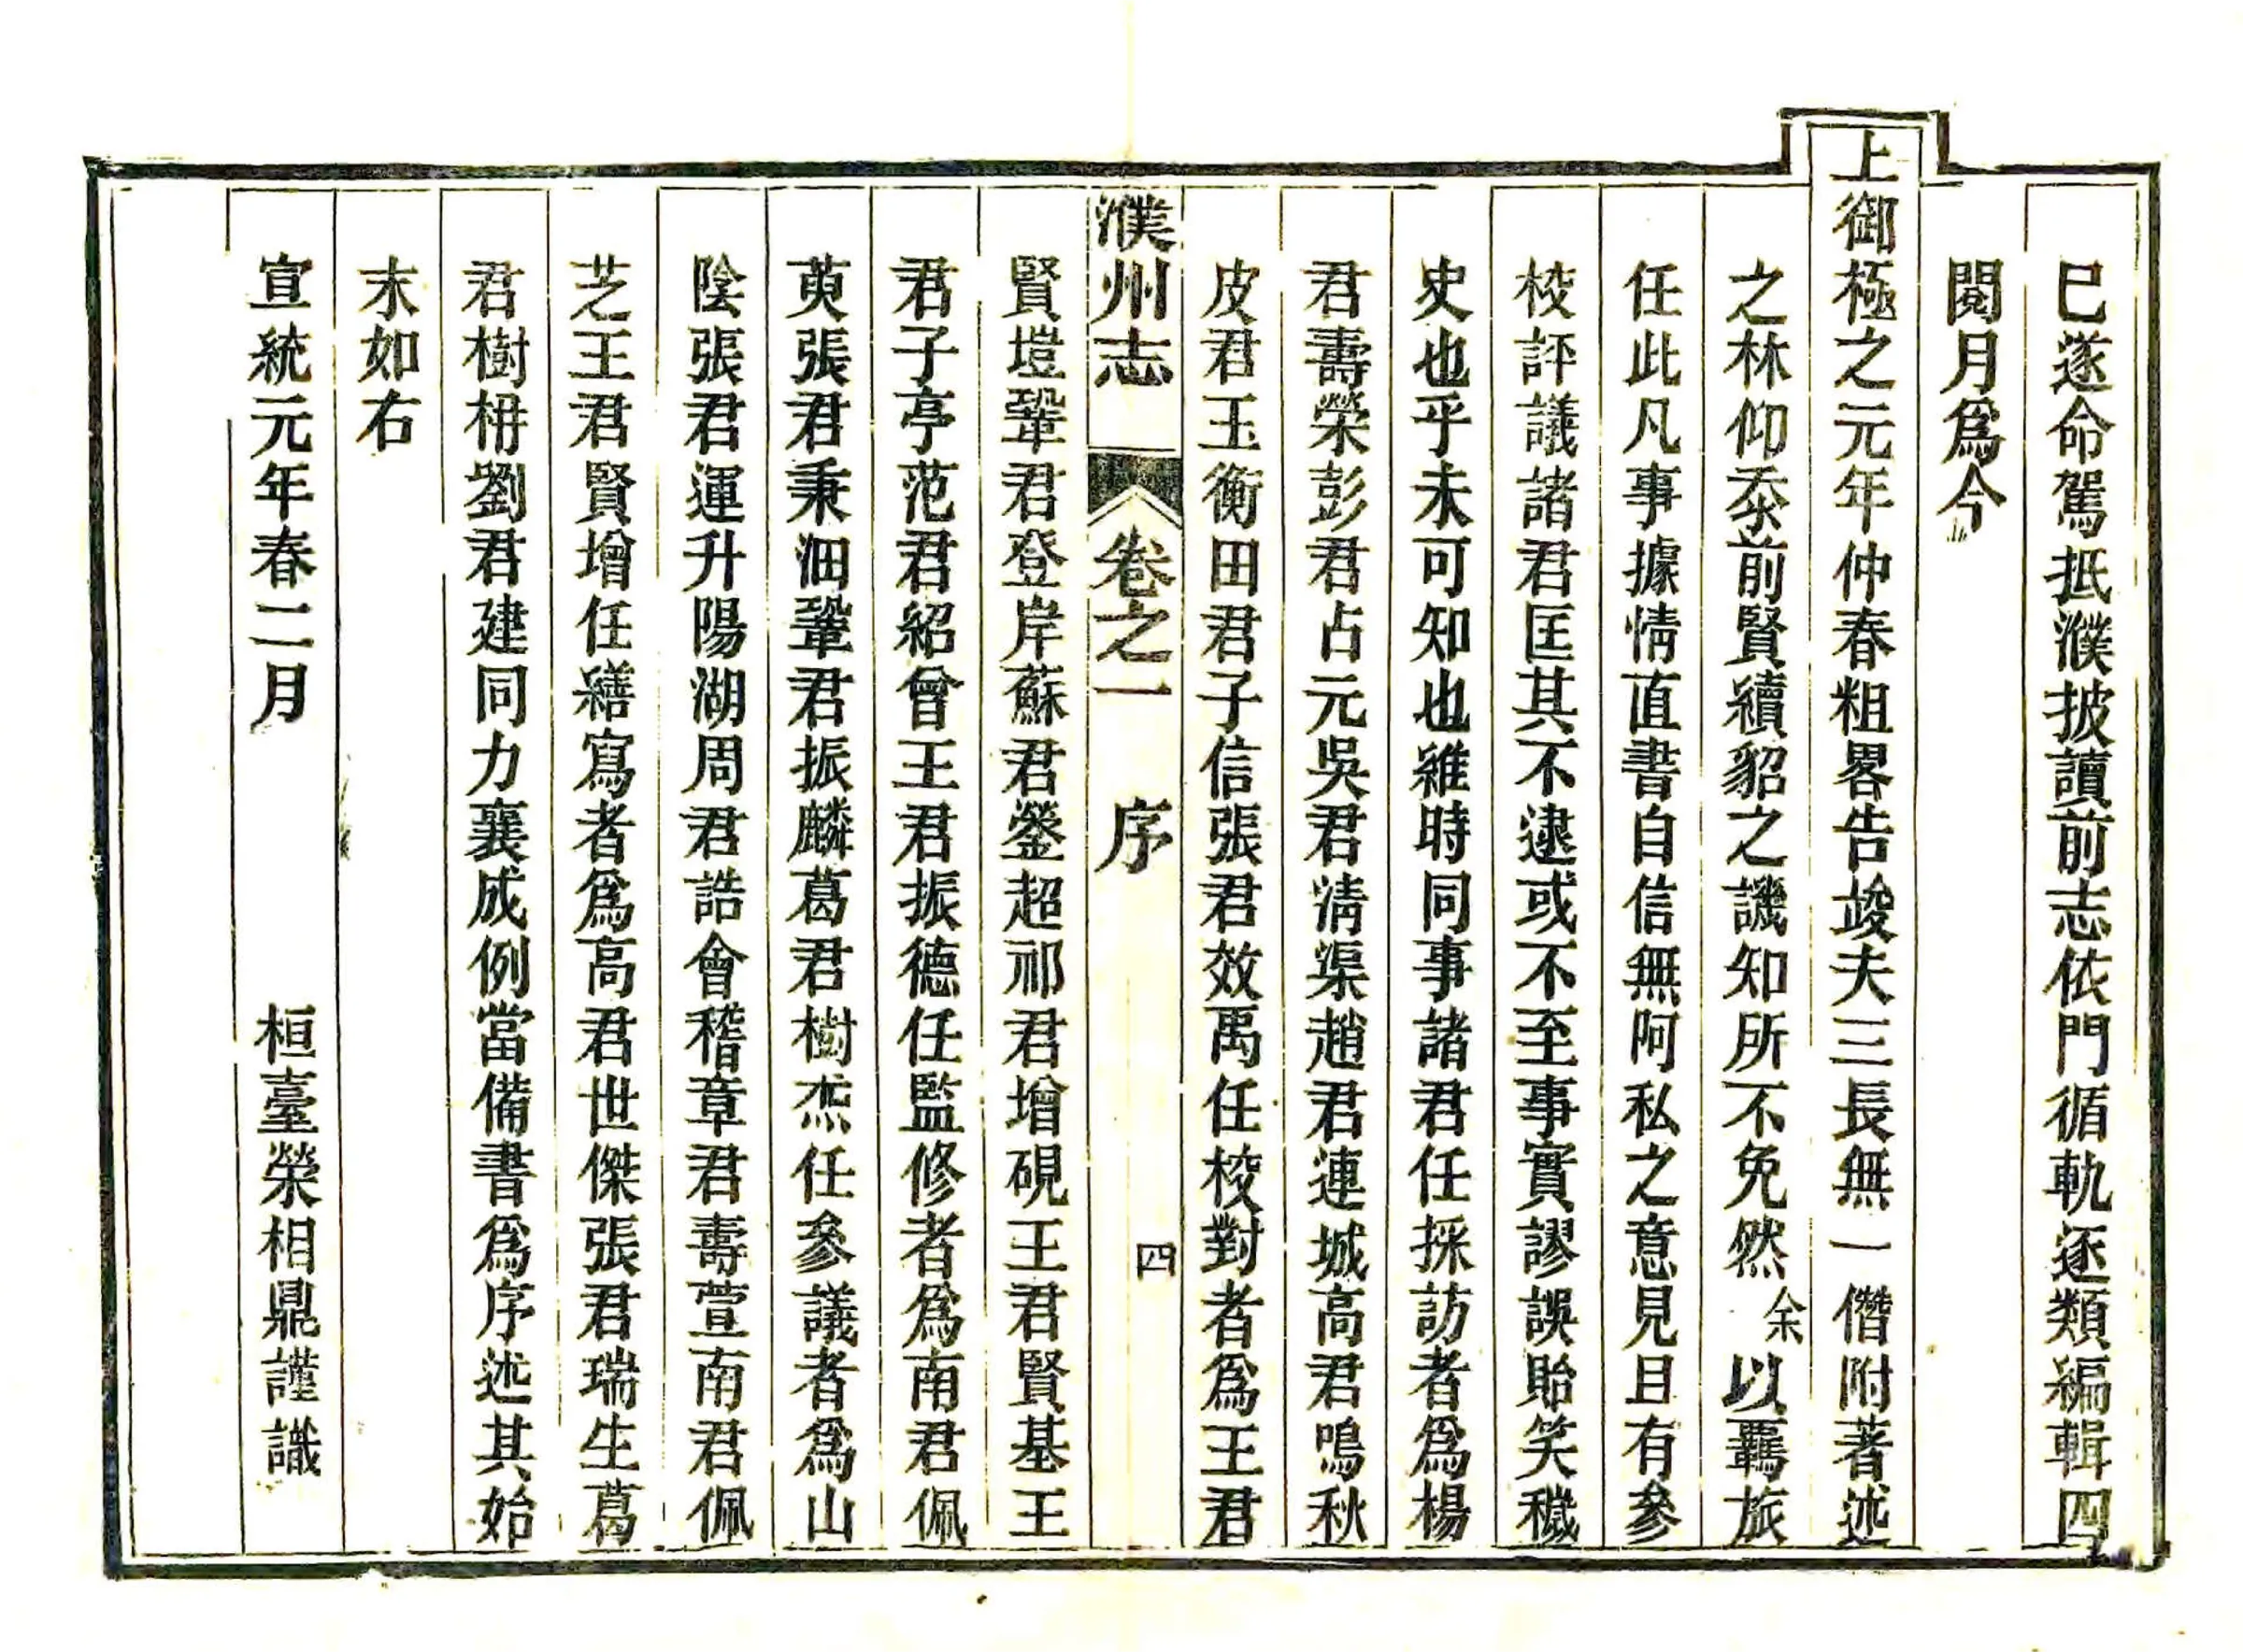 已遂命駕抵濮披讀前志依門循軌逐類編輯四
閱月爲今
上御極之元年仲春粗畧告竣夫三長無一僭附著述
之林仰忝前賢續貂之譏知所不免然余以羈旅
任此凡事據情直書自信無阿私之意見且有參
校評議諸君匡其不逮或不至事實謬誤貽笑穢
史也乎未可知也維時同事諸君任採訪者爲楊
君壽榮彭君占元吳君淸渠趙君連城高君鳴秋
皮君玉衡田君子信張君效禹任校對者爲王君
濮州志 卷之一 序 四
賢塏鞏君登岸蘇君鎣超祁君增硯王君賢基王
君子亭范君紹曾王君振德任監修者爲南君佩
萸張君秉洄鞏君振麟葛君樹杰任參議者爲山
陰張君運升陽湖周君誥會稽章君壽萱南君佩
芝王君賢增任繕寫者爲高君世傑張君瑞生葛
君樹枬劉君建同力襄成例當備書爲序述其始
末如右
宣統元年春二月 桓臺榮相鼎謹識